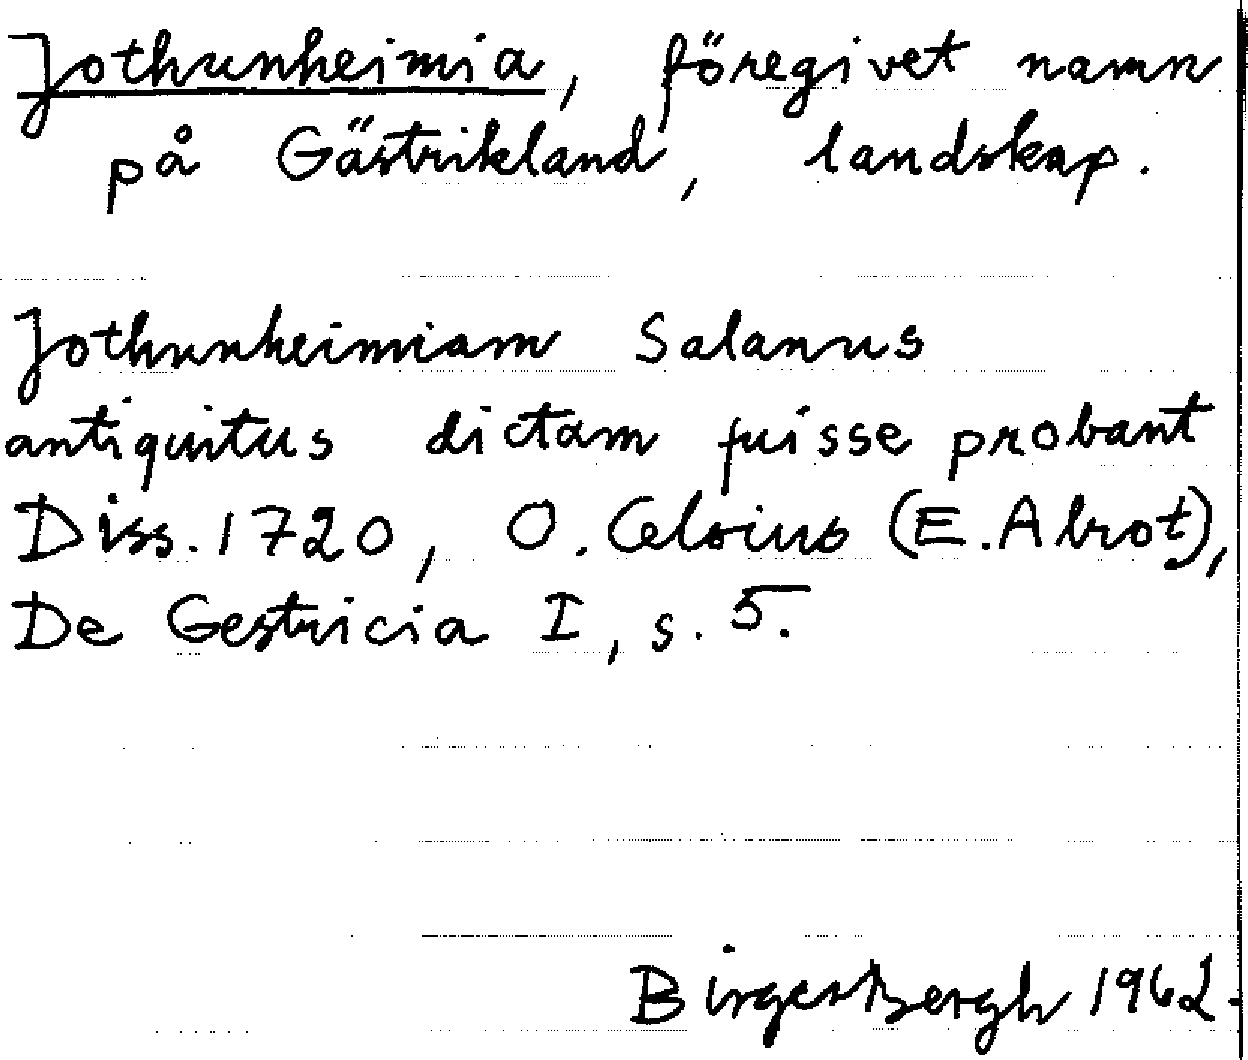 Jothunheimia, föregivet namn
på Gästrikland, landskap.
Jothunheimiam Salanus
antiquitus dictam fuisse probant
Diss. 1720, O. Celsius (E. Abrot),
De Gestricia I, s. 5.
Birger Bergh 1962.